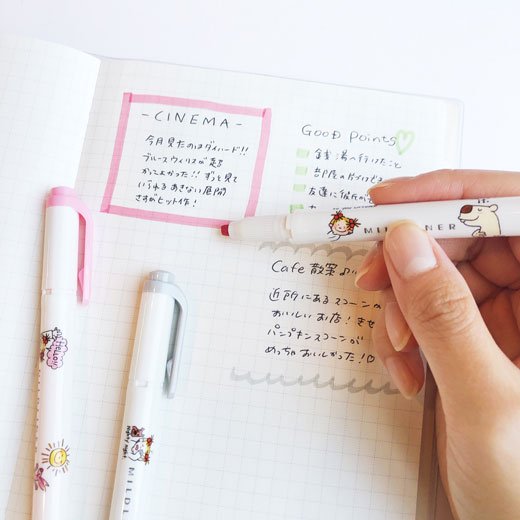 -CINEMA-
今月見たのはダイハード!!
ブルースウィリスが超
かっこよかった!! ずっと見て
いられるあきない展開
さすがヒット作!
Good Points
銭湯へ行けたこと
部屋の片づけ
友達に彼氏が
Cafe 散策♪
近所にあるスコーンの
おいしいお店!
パンプキンスコーンが
めっちゃおいしかった!♡
MILD
NER
MILDL